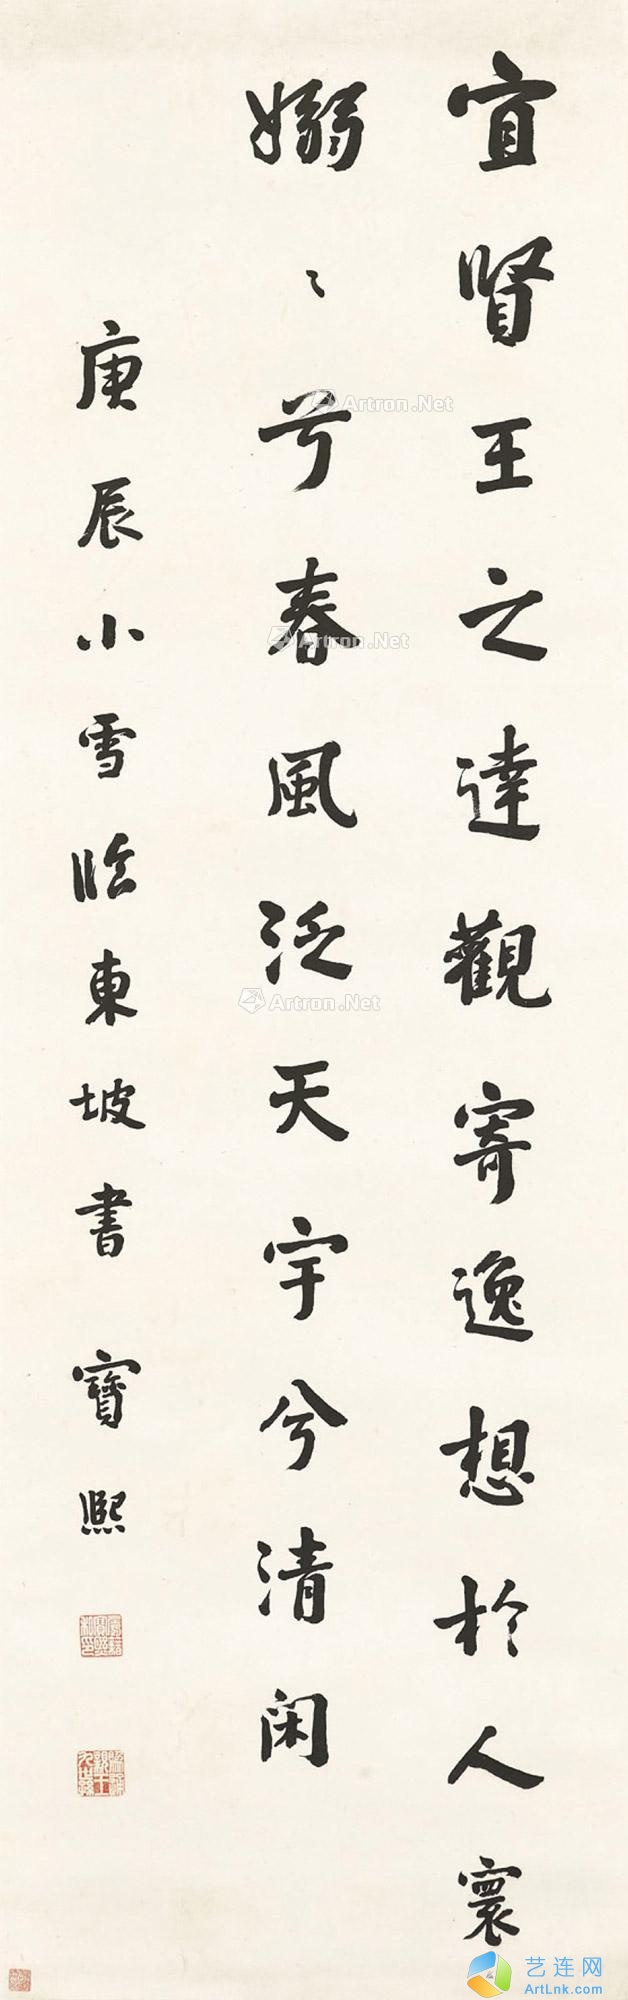 宜賢王之達觀寄逸想於人寰
嫋〻兮春風泛天宇兮清閑
庚辰小雪臨東坡書 寶熙
Artron.Net
Artron.Net
Artron.Net
艺连网
ArtLnk.com